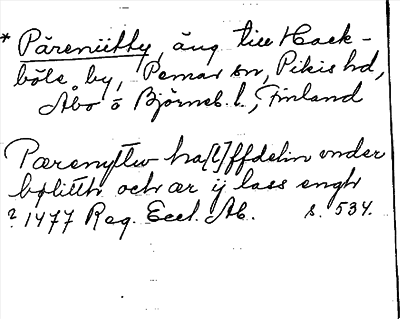 * Päreniitty, äng till Hack-
böle by, Pemar sn, Pikis hd,
Åbo o Björneb. l., Finland
Pærenyttw ha[l]ffdelin vnder
bolitth och ær ij lass engh
? 1477 Reg. Eccl. Ab. s. 534.